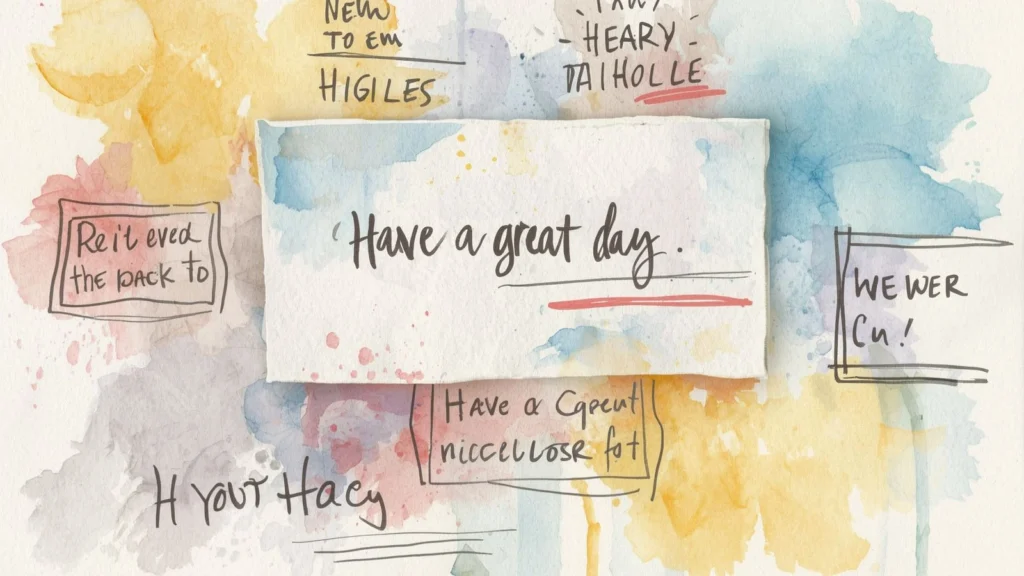 New
TO Em
HIGILES
HEARY
TAIHOLLE
Re it eved
the pack to
Have a great day.
WE WER
Cu!
HAVE a Cqpeut
niccellosr fot
H YOUT Hacy